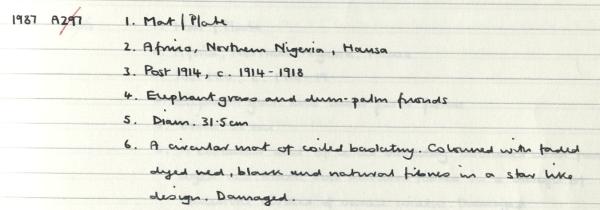 1987 A297 1. Mat / Plate
2. Africa, Northern Nigeria, Hausa
3. Post 1914, c. 1914-1918
4. Elephant grass and dum-palm fronds
5. Diam. 31.5cm
6. A circular mat of coiled basketry. Coloured with faded
dyed red, black and natural fibres in a star like
design. Damaged.